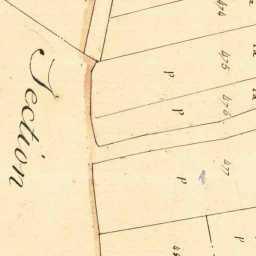 Section
474
475
P
P
476
477
P
P